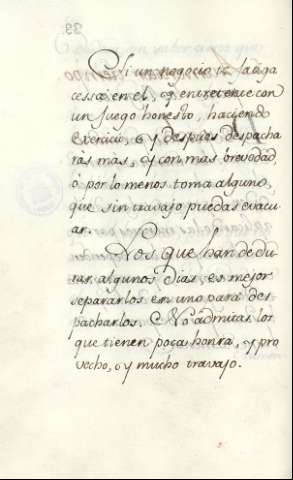 Si un negocio te fatiga
cessa en el, y entretente con
un juego honesto, haciendo
exercicio, y despues despacha
ras mas, y con mas brevedad,
ò por lo menos toma alguno,
que sin travajo puedas evacu
ar.
Los que han de du
rar algunos dias, es mejor
separarlos en uno para des
pacharlos. No admitas los
que tienen poca honra, y pro
vecho, y mucho travajo.